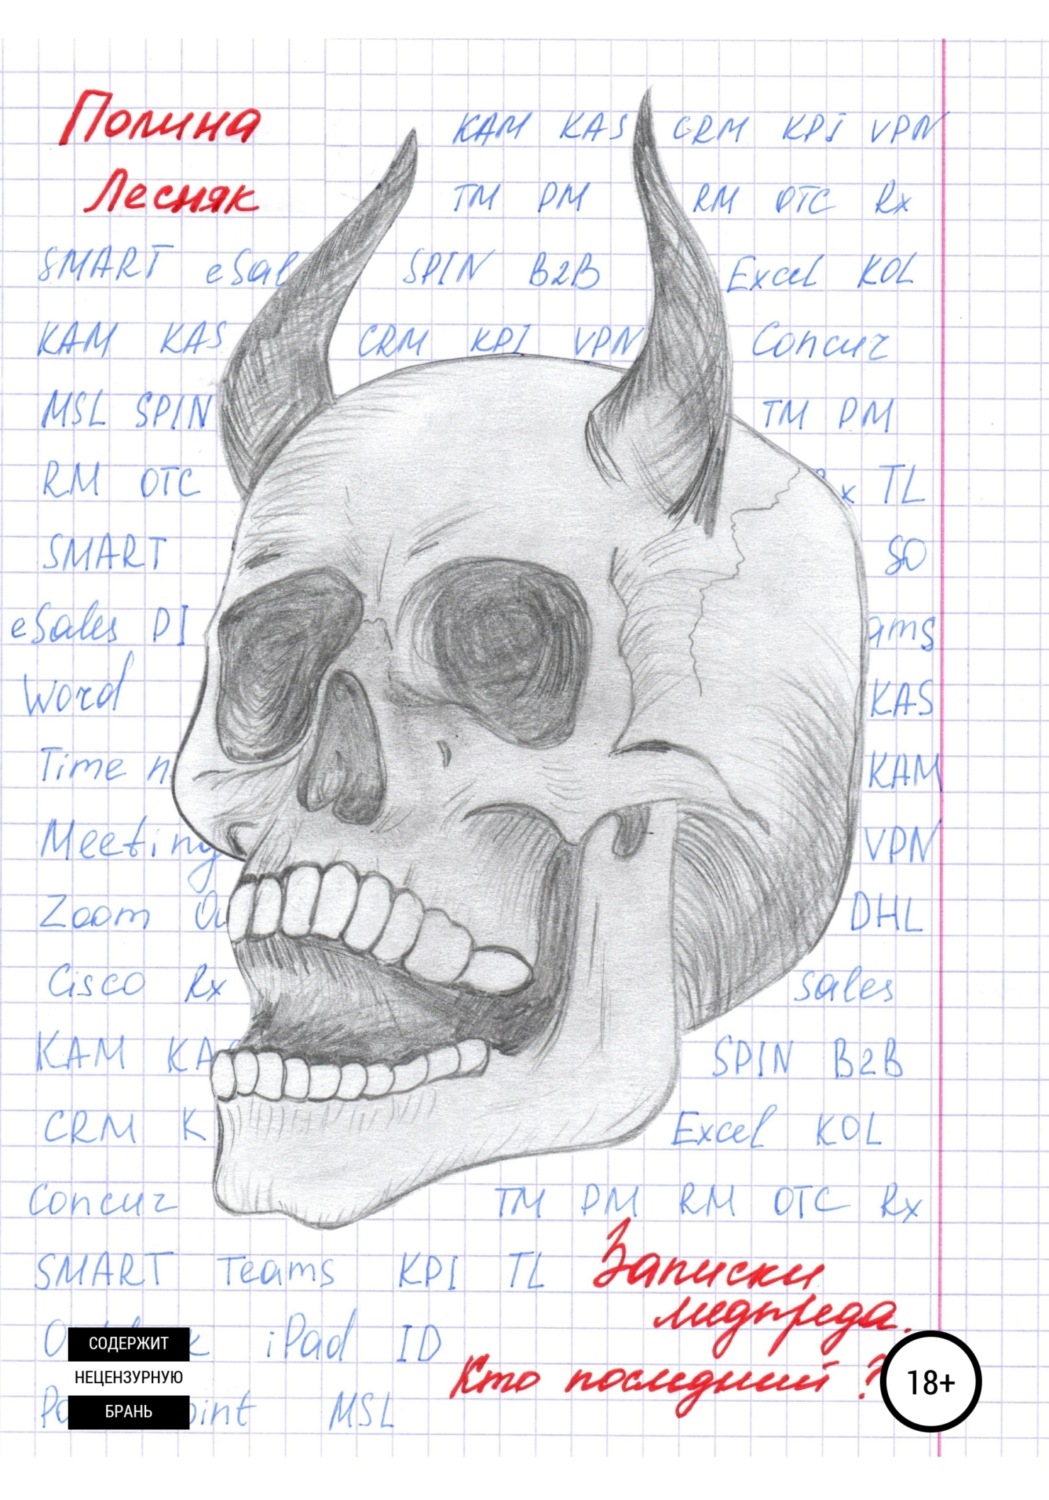 Полина
Лесняк
KAM KAS CRM KPI VPN
TM PM RM OTC Rx
SMART eSal SPIN B2B Excel KOL
KAM KAS CRM KPI VPN Concur
MSL SPIN TM PM
RM OTC x TL
SMART SO
eSales PI ams
Word KAS
Time KAM
Meeting VPN
Zoom Ou DHL
Cisco Rx sales
KAM KA SPIN B2B
CRM K Excel KOL
Concur TM PM RM OTC Rx
SMART Teams KPI TL
Записки
медпреда.
iPad ID
Кто последний?
oint MSL
СОДЕРЖИТ
НЕЦЕНЗУРНУЮ
БРАНЬ
18+